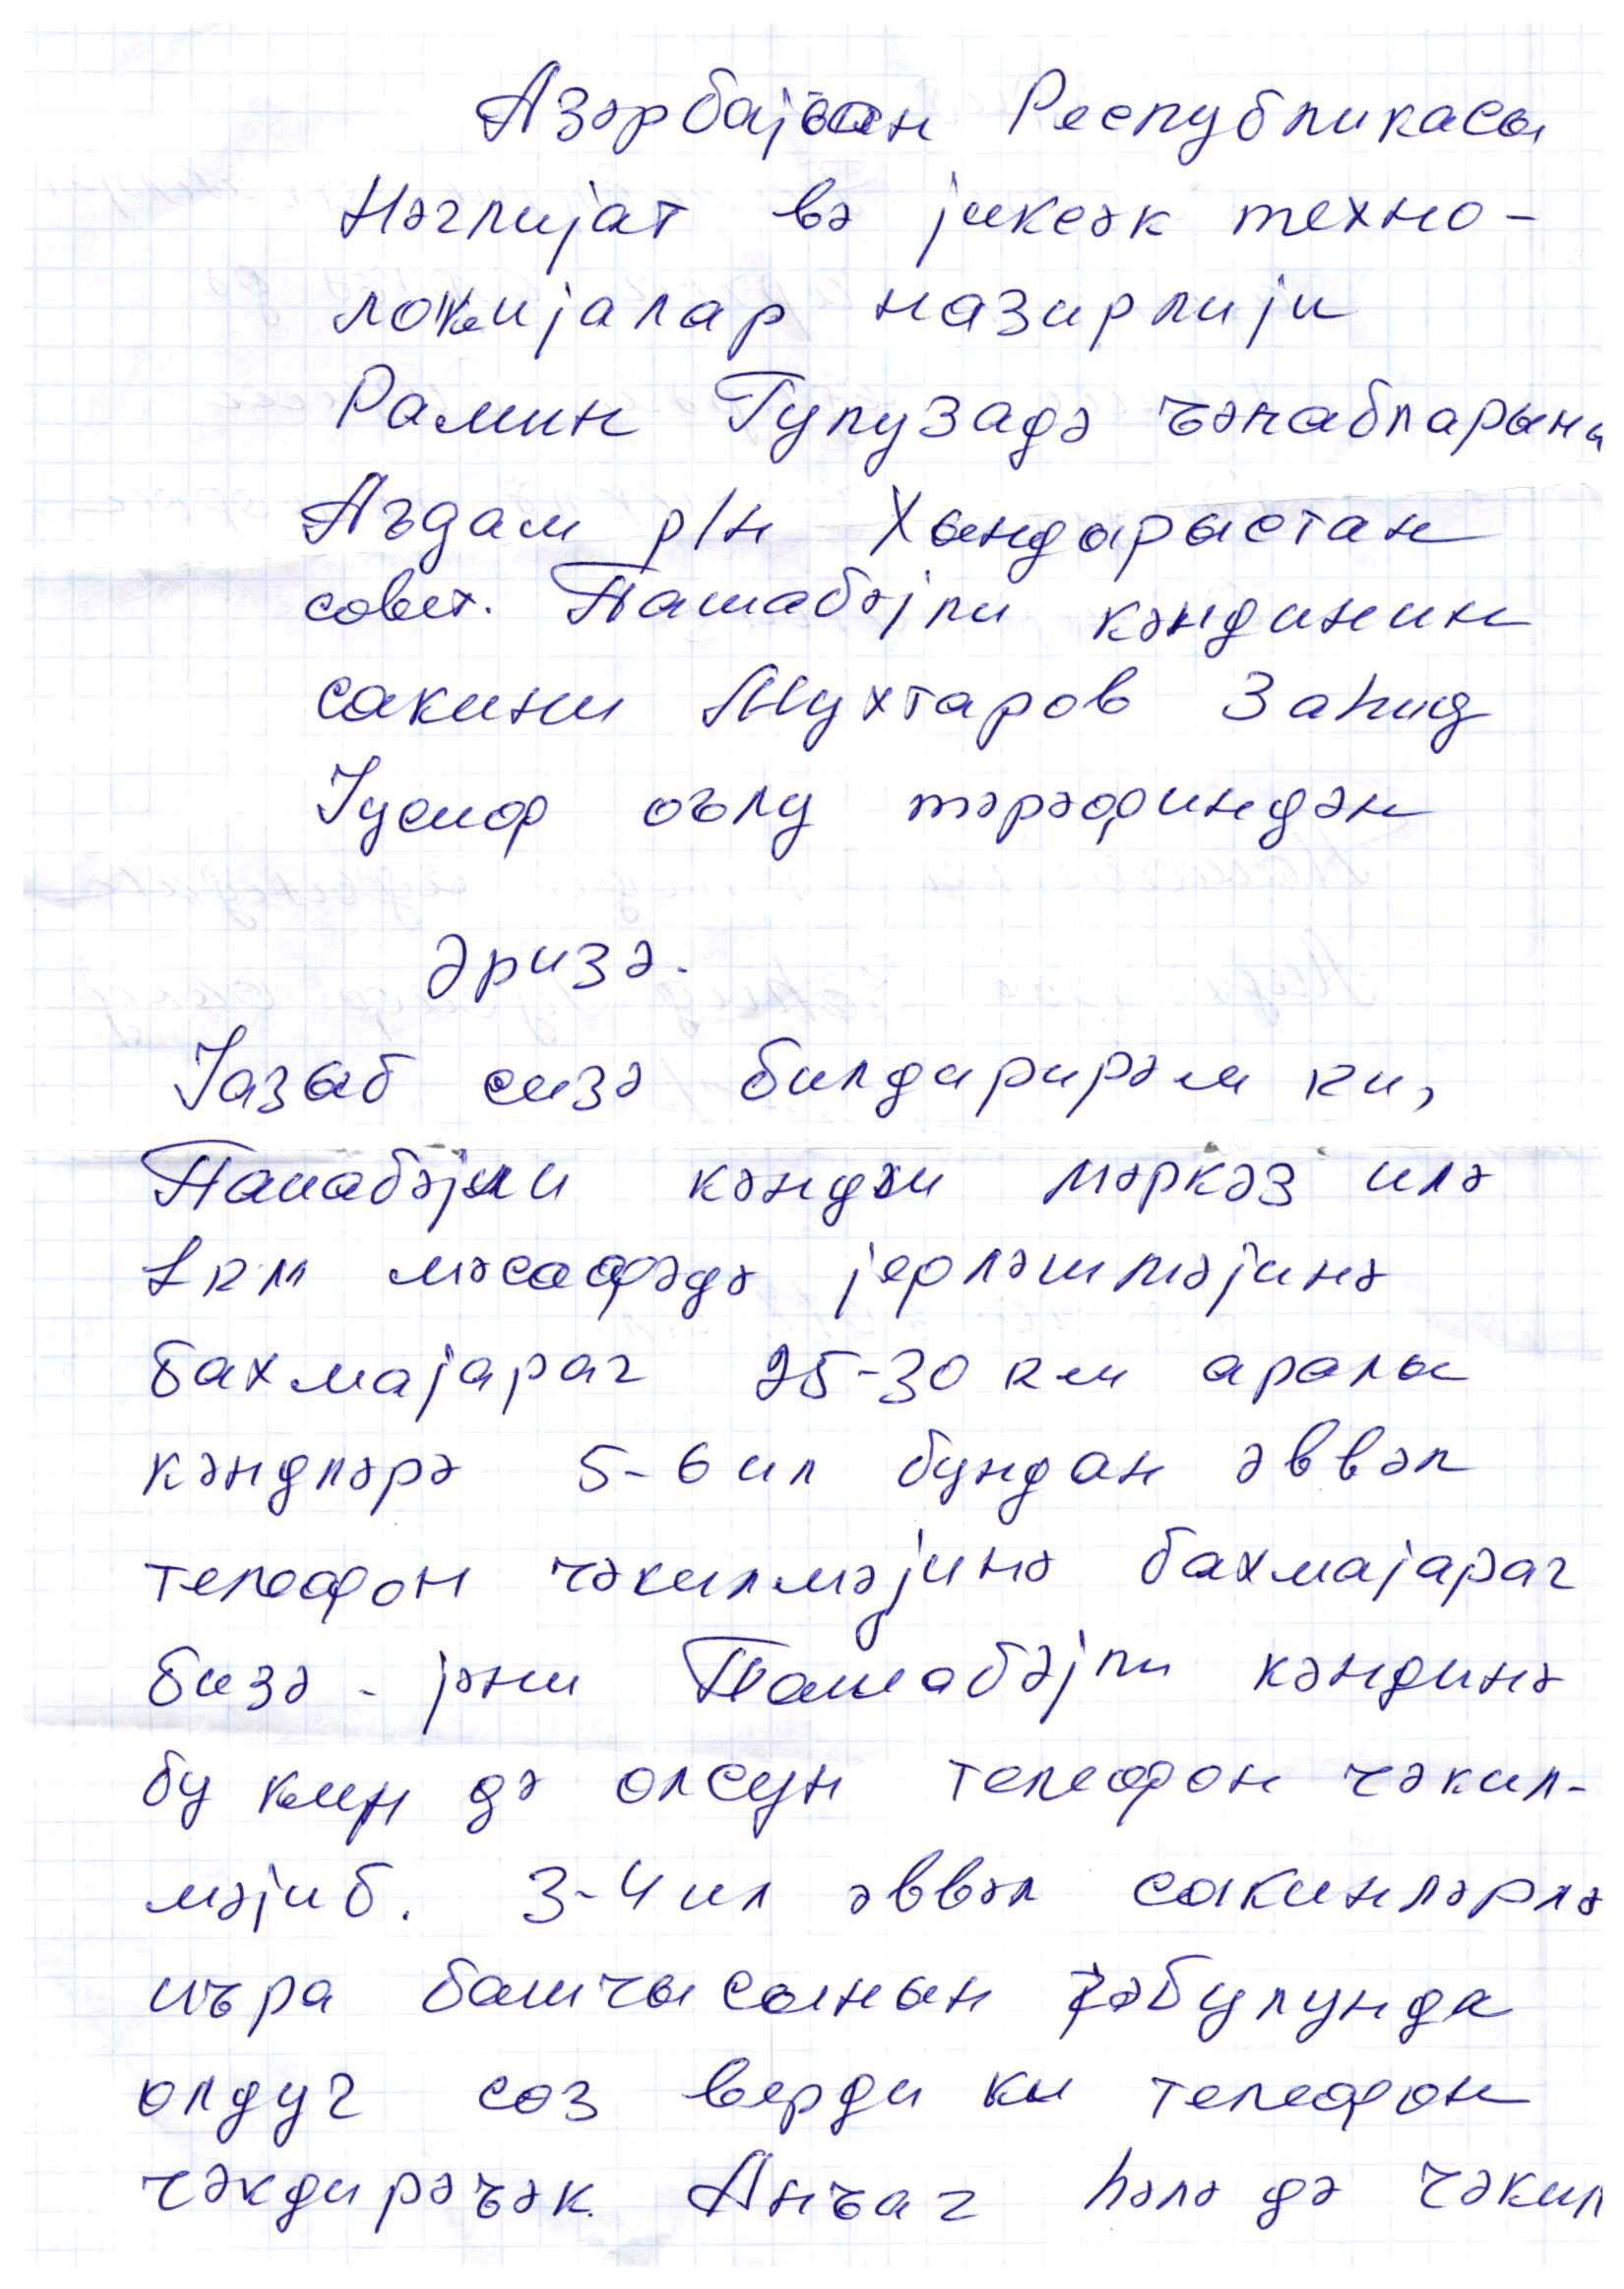 Азәрбајҹан Республикасы
Нәглијат вә јиксәк техно-
ложијалар назирлији
Рамин Гулузадә ҹәнабларына
Аъдам р/н Хындырыстан
совет. Пашабәјли кәндинин
сакини Мухтаров Заһид
Јусиф оълу тәрәфиндән
Әризә.
Јазыб сизә билдирирәм ки,
Пашабәјли кәнди мәркәз илә
1 км мәсафәдә јерләшмәјинә
бахмајараг 25-30 км аралы
кәндләрә 5-6 ил бундан әввәл
телефон чәкилмәјинә бахмајараг
бизә - јәни Пашабәјли кәндинә
бу кин дә олсун телефон чәкил-
мәјиб. 3-4 ил әввәл сакинләрлә
иҹра башчысынын гәбулунда
олдуг соз верди ки телефон
чәкдирәҹәк. Анҹаг һәлә дә чәкил